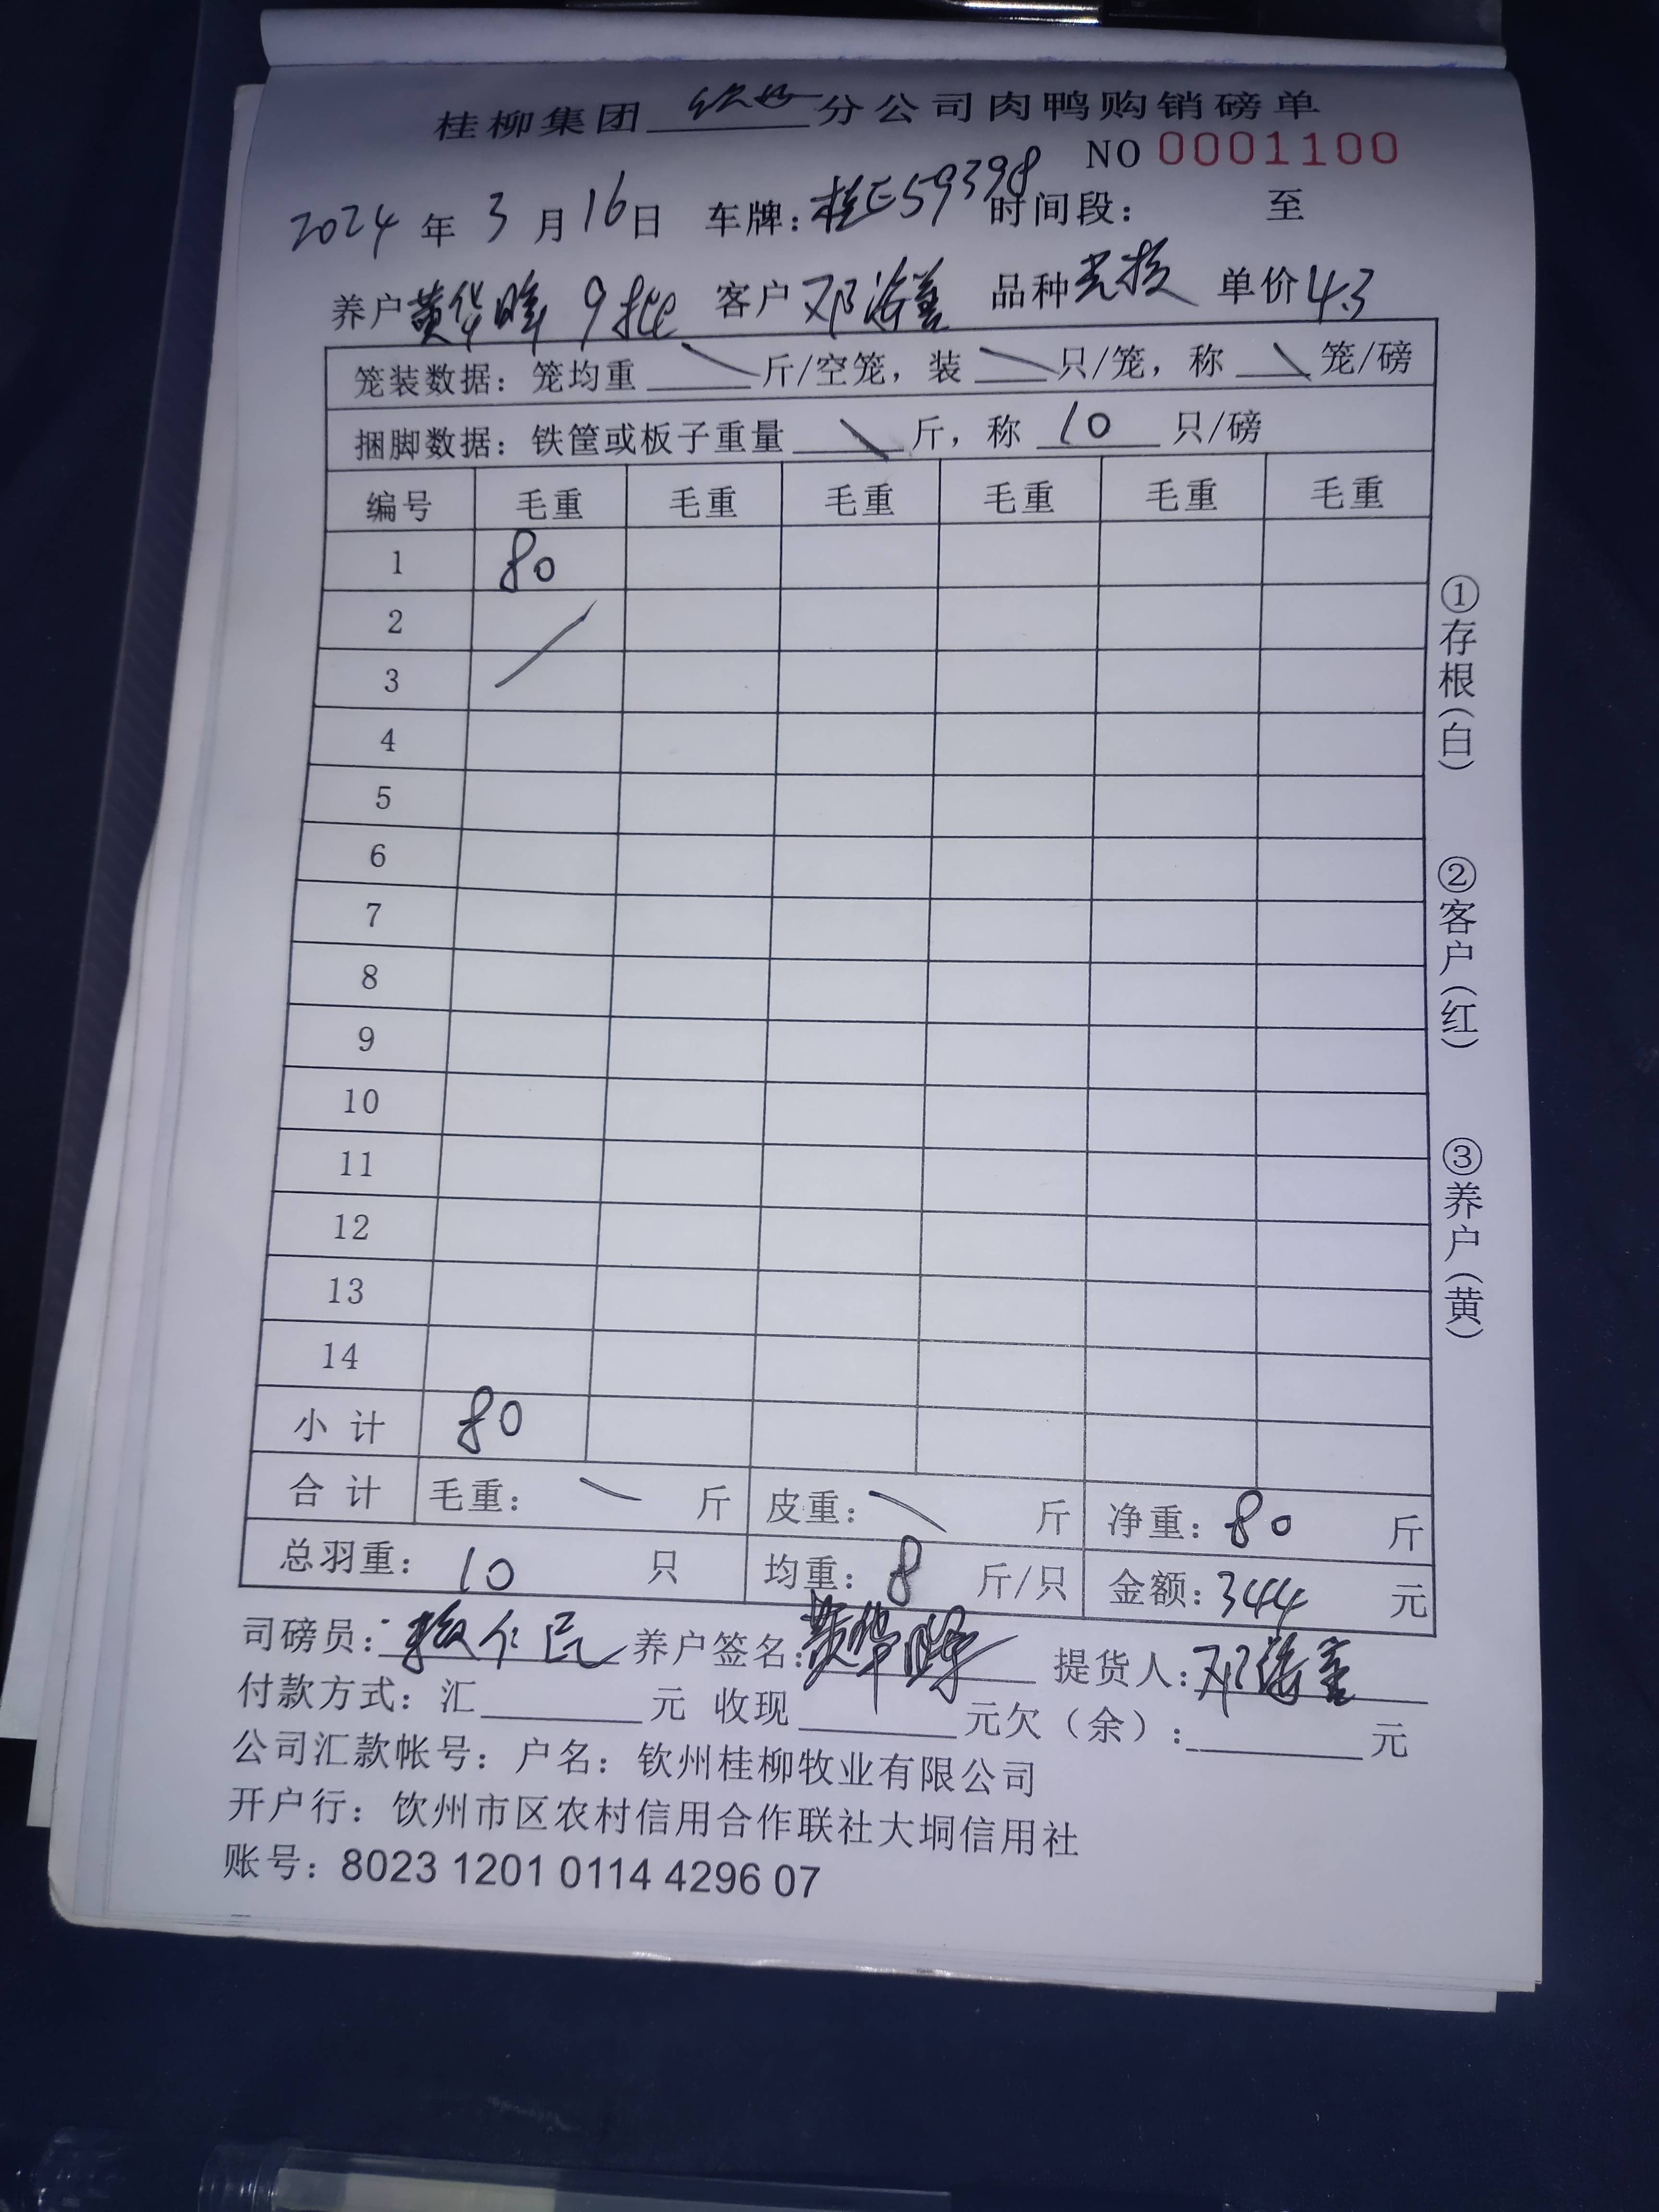 桂柳集团 分公司肉鸭购销磅单
NO 0001100
2024 年 3 月 16 日 车牌: 桂E59398 时间段: 至
养户 黄华峰 9批 客户 邓海善 品种 单价 4.3
笼装数据: 笼均重 斤/空笼, 装 只/笼, 称 笼/磅
捆脚数据: 铁筐或板子重量 斤, 称 10 只/磅
编号 毛重 毛重 毛重 毛重 毛重 毛重
1 80
2
3
4
5
6
7
8
9
10
11
12
13
14
小 计 80
合 计 毛重: 斤 皮重: 斤 净重: 80 斤
总羽重: 10 只 均重: 8 斤/只 金额: 344 元
司磅员: 养户签名: 黄华峰 提货人: 邓海善
付款方式: 汇 元 收现 元欠(余): 元
公司汇款帐号: 户名: 钦州桂柳牧业有限公司
开户行: 钦州市区农村信用合作联社大垌信用社
账号: 8023 1201 0114 4296 07
①存根(白)
②客户(红)
③养户(黄)